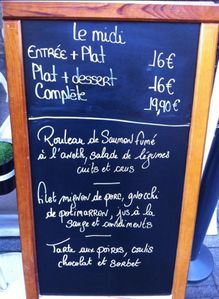 Le midi
ENTRÉE + Plat 16€
Plat + dessert 16€
Complète 19,90€
Rouleau de Saumon fumé
à l'aneth, salade de légumes
cuits et crus
Filet mignon de porc, gnocchi
de potimarron, jus à la
sauge et condiments
Tarte aux poires, coulis
chocolat et sorbet